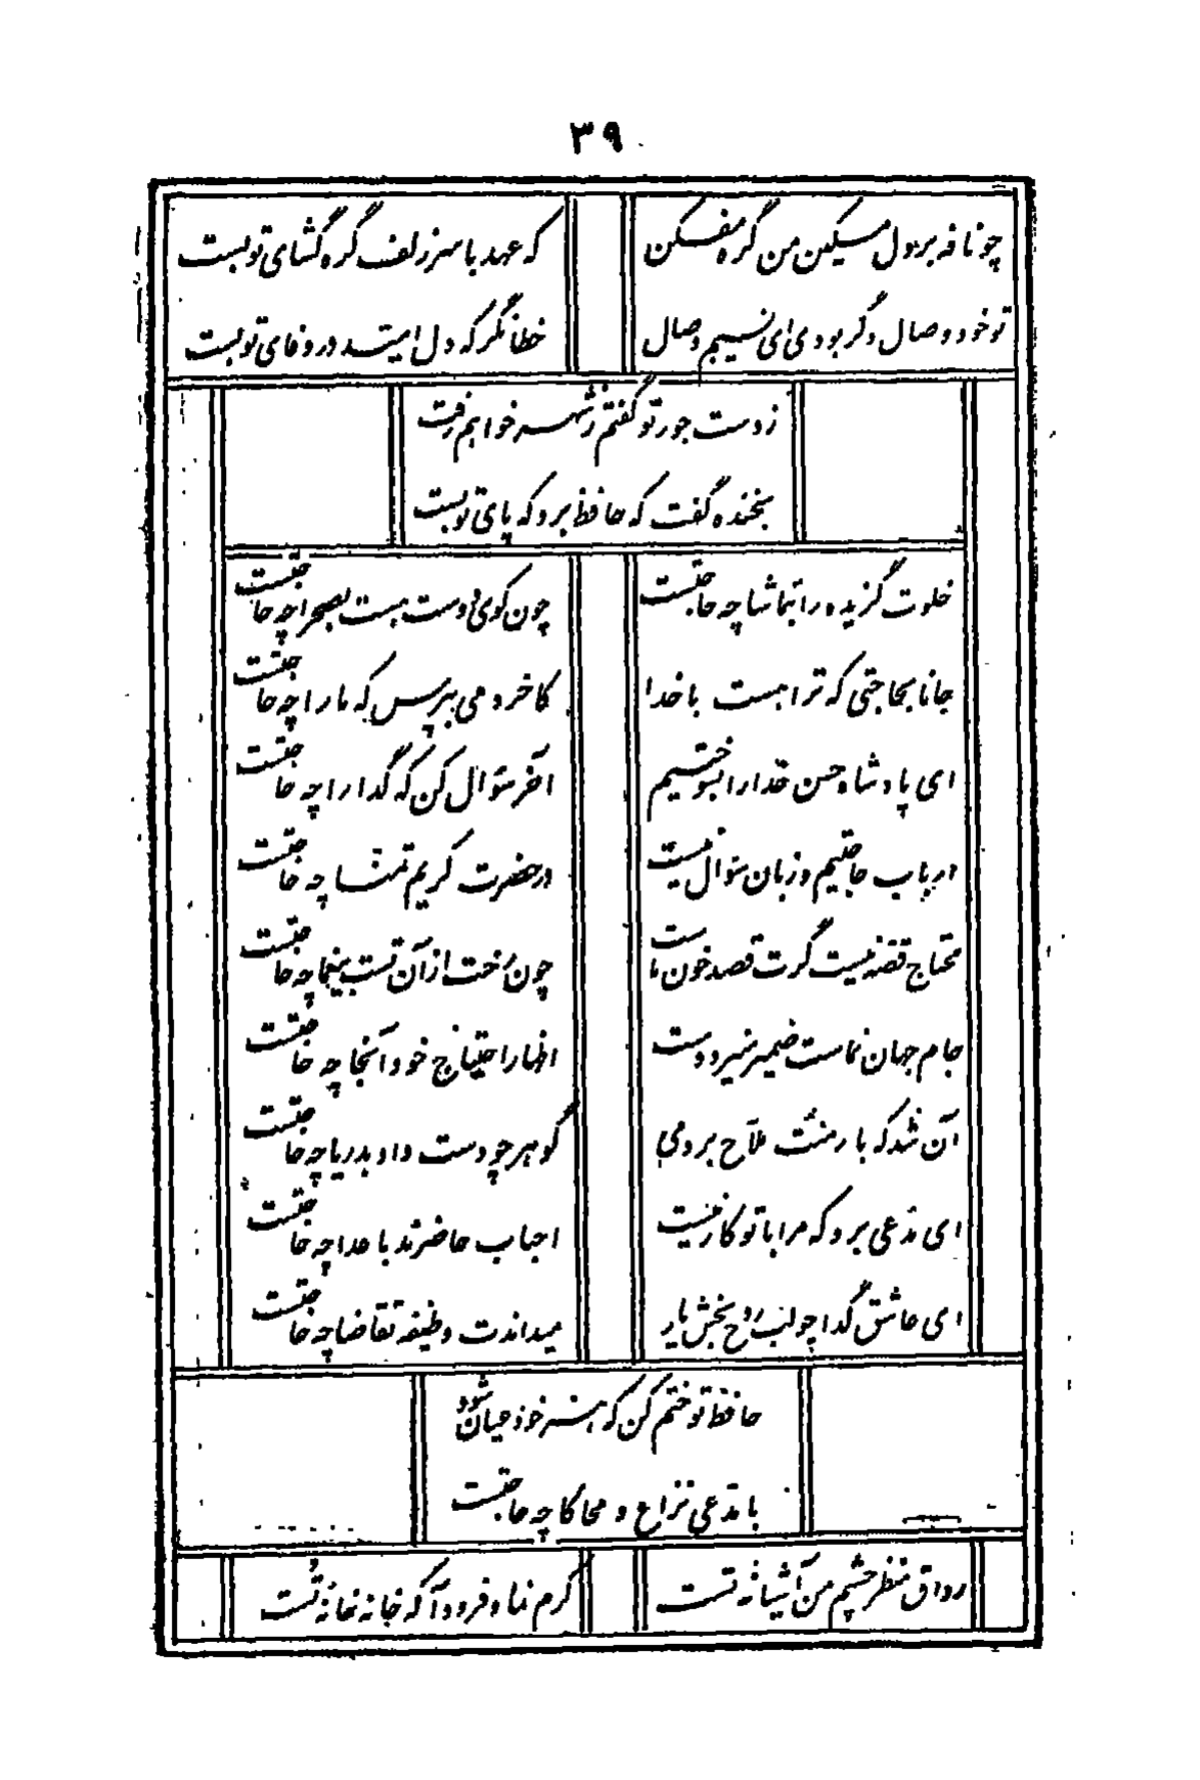 ۳۹
چو نافه بر دل مسکین من گره مفکن
که عهد با سر زلف گره گشای تو بست
تو خود وصال دگر بودی ای نسیم وصال
خطا نگر که دل امید در وفای تو بست
ز دست جور تو گفتم ز شهر خواهم رفت
بخنده گفت که حافظ برو که پای تو بست
خلوت گزیده را بتماشا چه حاجتست
چون کوی دوست هست بصحرا چه حاجتست
جانا بحاجتی که ترا هست با خدا
کاخر دمی بپرس که ما را چه حاجتست
ای پادشاه حسن خدا را بسوختیم
آخر سؤال کن که گدا را چه حاجتست
ارباب حاجتیم و زبان سؤال نیست
در حضرت کریم تمنا چه حاجتست
محتاج قصه نیست گرت قصد خون ماست
چون رخت ازآن تست بیغما چه حاجتست
جام جهان نماست ضمیر منیر دوست
اظهار احتیاج خود آنجا چه حاجتست
آن شد که بار منت ملاح بردمی
گوهر چو دست داد بدریا چه حاجتست
ای مدعی برو که مرا با تو کار نیست
احباب حاضرند باعدا چه حاجتست
ای عاشق گدا چو لب روح بخش یار
میداندت وظیفه تقاضا چه حاجتست
حافظ تو ختم کن که هنر خود عیان شود
با مدعی نزاع و محاکا چه حاجتست
رواق منظر چشم من آشیانه تست
کرم نما و فرود آ که خانه خانه تست